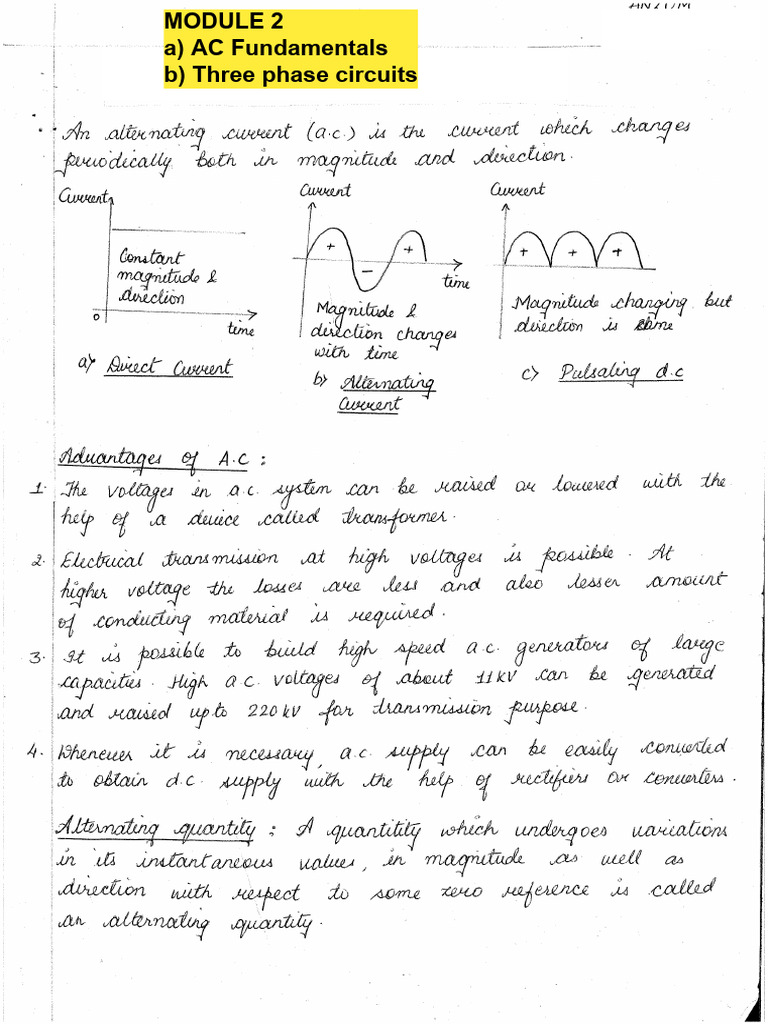 MODULE 2
a) AC Fundamentals
b) Three phase circuits
An alternating current (a.c.) is the current which changes
periodically both in magnitude and direction.
Current
Constant
magnitude &
direction
0
time
a) Direct Current
Current
+
-
+
time
Magnitude &
direction changes
with time
b) Alternating
Current
Current
+
+
+
Magnitude changing but
direction is same
c) Pulsating d.c
Advantages of A.C :
1. The voltages in a.c. system can be raised or lowered with the
help of a device called transformer.
2. Electrical transmission at high voltages is possible. At
higher voltage the losses are less and also lesser amount
of conducting material is required.
3. It is possible to build high speed a.c. generators of large
capacities. High a.c. voltages of about 11kV can be generated
and raised upto 220kV for transmission purpose.
4. Whenever it is necessary, a.c. supply can be easily converted
to obtain d.c. supply with the help of rectifiers or converters.
Alternating quantity : A quantitity which undergoes variations
in its instantaneous values, in magnitude as well as
direction with respect to some zero reference is called
an alternating quantity.